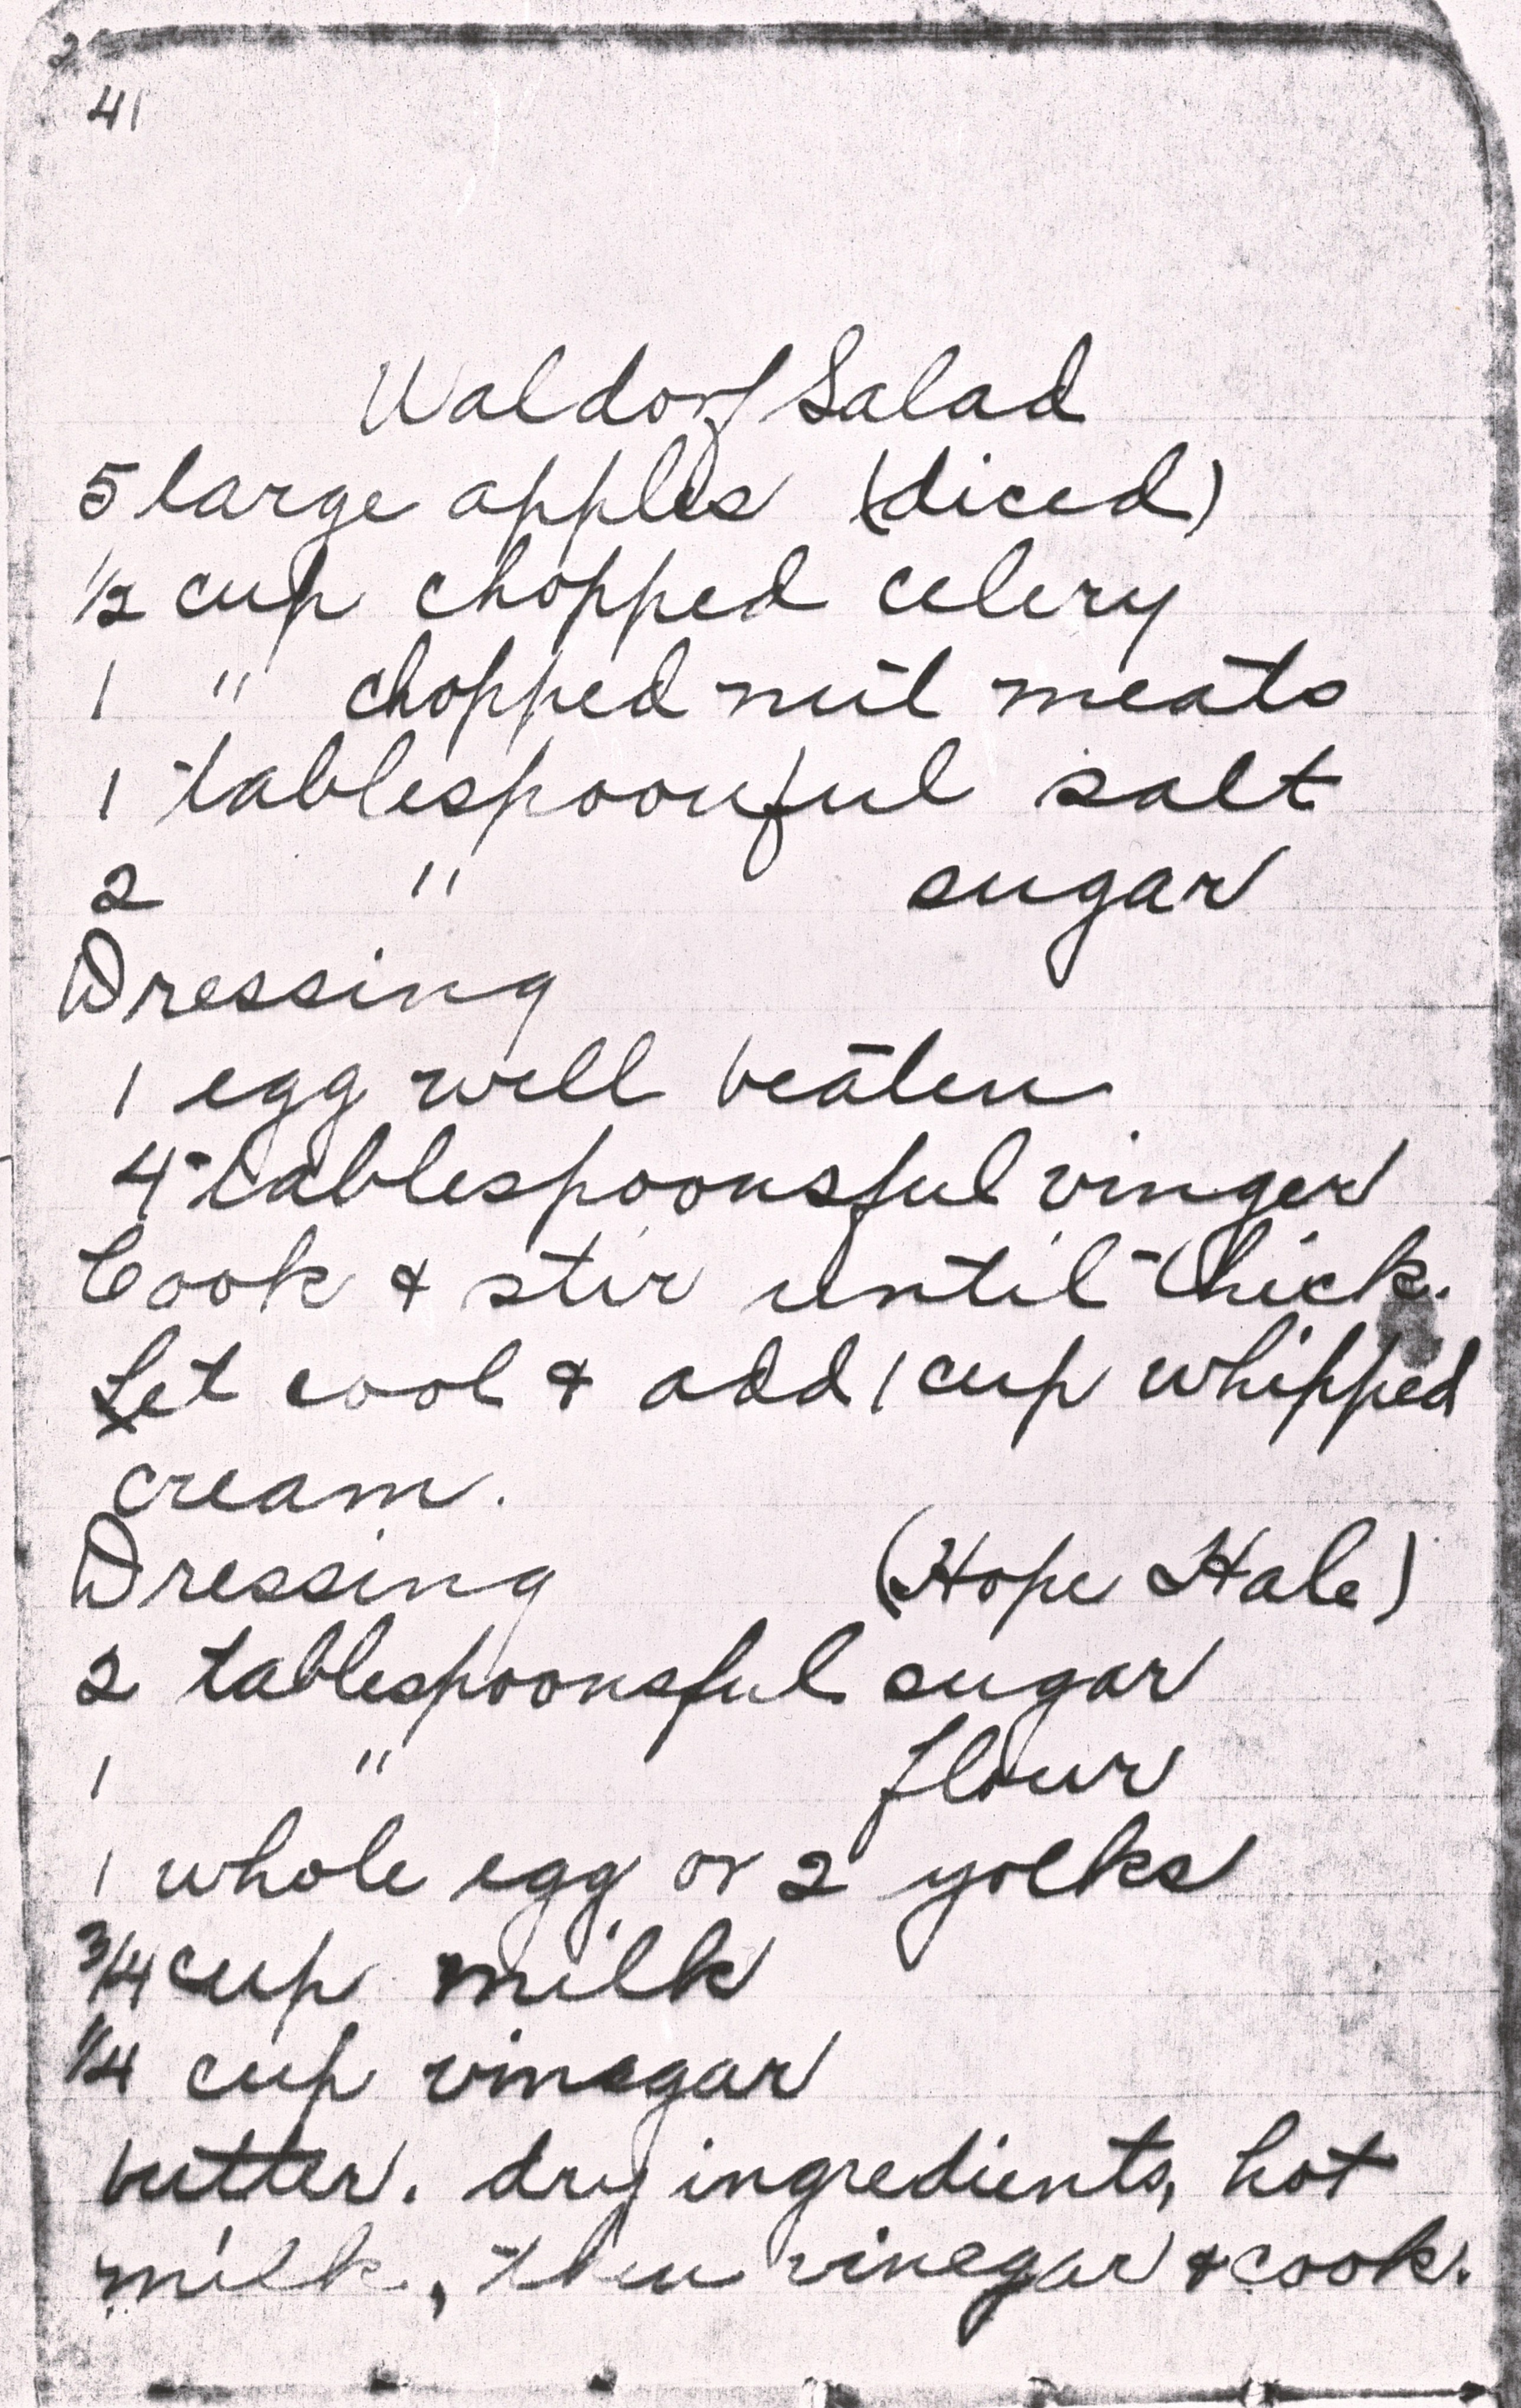 41
Waldorf Salad
5 large apples (diced)
1/2 cup chopped celery
1 " chopped nut meats
1 tablespoonful salt
2 " sugar
Dressing
1 egg well beaten
4 tablespoonsful vinger
Cook & stir until thick.
Let cool & add 1 cup whipped
cream.
Dressing (Hope Hale)
2 tablespoonsful sugar
1 " flour
1 whole egg or 2 yolks
3/4 cup milk
1/4 cup vinegar
butter. dry ingredients, hot
milk, then vinegar & cook.